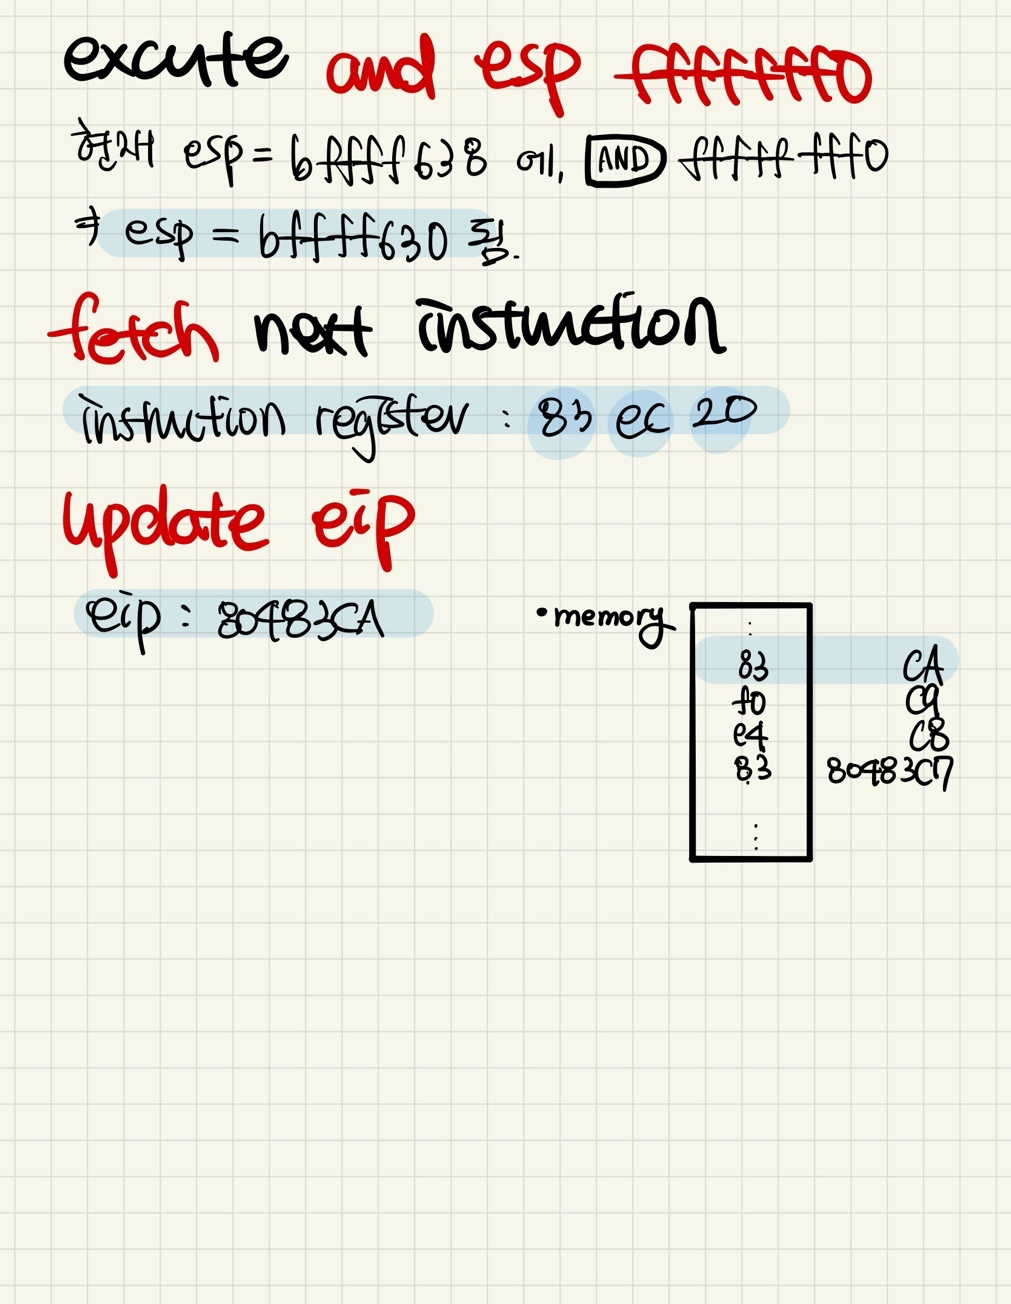 excute and esp fffffff0
현재 esp = bffff638 에, AND fffffff0
⇒ esp = bffff630 됨.
fetch next instruction
instruction register : 83 ec 20
update eip
eip : 80483CA
• memory
⋮
83 CA
f0 C9
e4 C8
83 80483C7
⋮